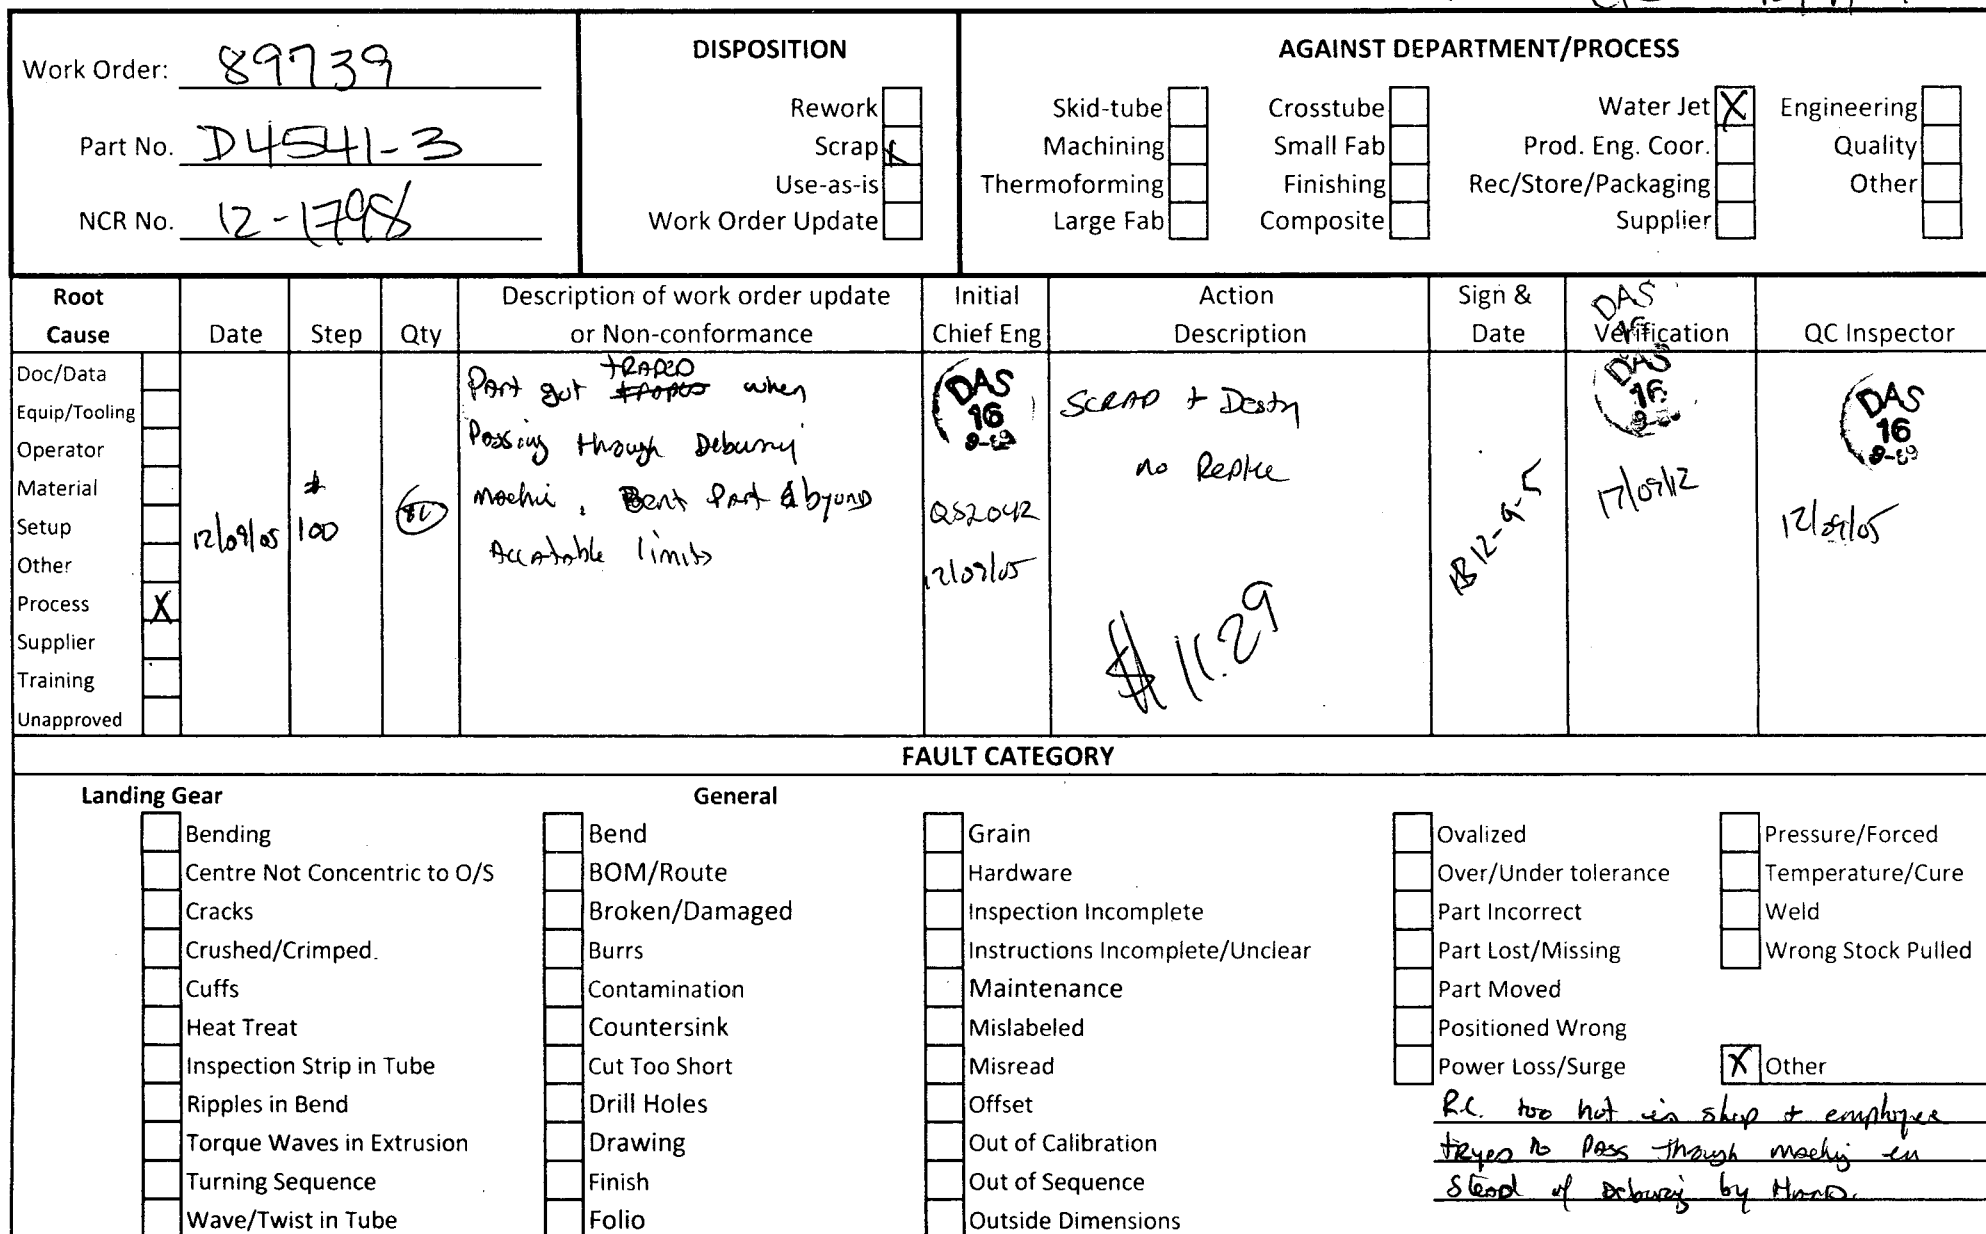 Work Order: 89739
Part No. D4541-3
NCR No. 12-1798
DISPOSITION
Rework
Scrap
Use-as-is
Work Order Update
AGAINST DEPARTMENT/PROCESS
Skid-tube Crosstube Water Jet X Engineering
Machining Small Fab Prod. Eng. Coor. Quality
Thermoforming Finishing Rec/Store/Packaging Other
Large Fab Composite Supplier
Root Cause
Date
Step
Qty
Description of work order update
or Non-conformance
Initial
Chief Eng
Action
Description
Sign &
Date
Verification
QC Inspector
Doc/Data
Equip/Tooling
Operator
Material
Setup
Other
Process X
Supplier
Training
Unapproved
12/09/05
100
Part got when
Passing through
Part
limits
DAS
16
QS2042
12/09/05
SCRAP +
no
$11.29
12-9-5
DAS
16
DAS
16
DAS
16
12/09/05
FAULT CATEGORY
Landing Gear
Bending
Centre Not Concentric to O/S
Cracks
Crushed/Crimped.
Cuffs
Heat Treat
Inspection Strip in Tube
Ripples in Bend
Torque Waves in Extrusion
Turning Sequence
Wave/Twist in Tube
General
Bend
BOM/Route
Broken/Damaged
Burrs
Contamination
Countersink
Cut Too Short
Drill Holes
Drawing
Finish
Folio
Grain
Hardware
Inspection Incomplete
Instructions Incomplete/Unclear
Maintenance
Mislabeled
Misread
Offset
Out of Calibration
Out of Sequence
Outside Dimensions
Ovalized
Over/Under tolerance
Part Incorrect
Part Lost/Missing
Part Moved
Positioned Wrong
Power Loss/Surge
Pressure/Forced
Temperature/Cure
Weld
Wrong Stock Pulled
X Other
R.C. too hot in shop + employee
to Pass through
of by